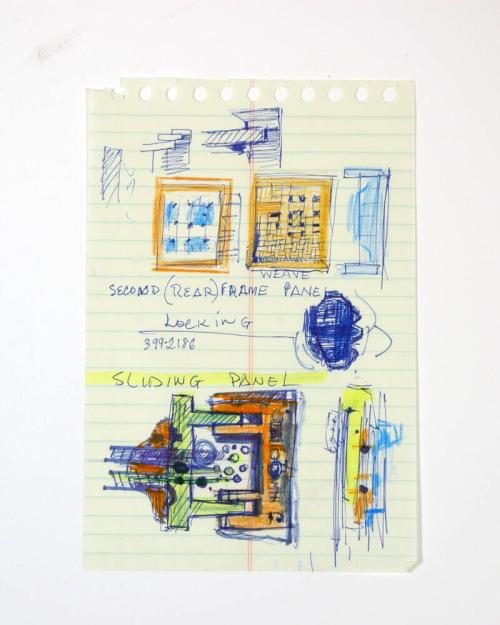 WEAVE
SECOND (REAR) FRAME PANEL
LOCKING
399-2186
SLIDING PANEL